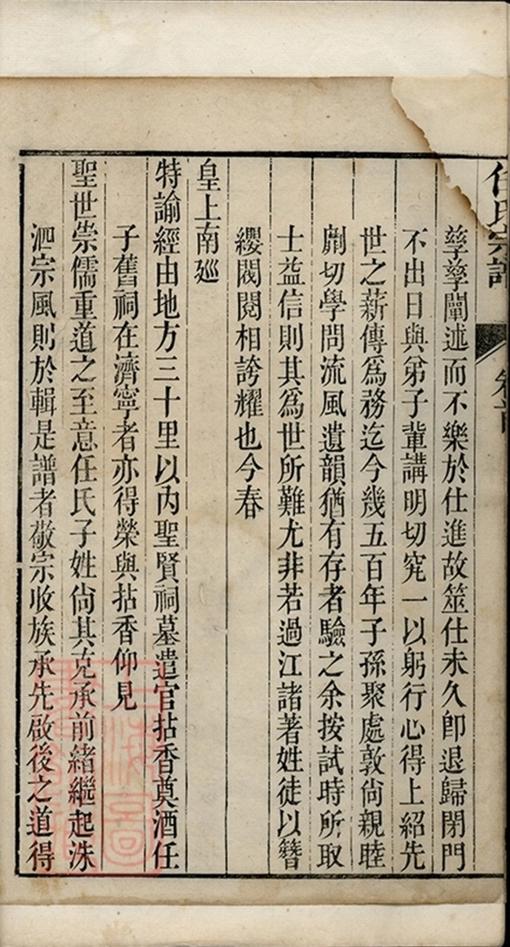 任氏宗譜
卷首
孳孳闡述而不樂於仕進故筮仕未久卽退歸閉門
不出日與弟子輩講明切究一以躬行心得上紹先
世之薪傳爲務迄今幾五百年子孫聚處敦尙親睦
劘切學問流風遺韻猶有存者驗之余按試時所取
士益信則其爲世所難尤非若過江諸著姓徒以簪
纓閥閱相誇耀也今春
皇上南廵
特諭經由地方三十里以內聖賢祠墓遣官拈香奠酒任
子舊祠在濟寧者亦得榮與拈香仰見
聖世崇儒重道之至意任氏子姓尙其克承前緒繼起洙
泗宗風則於輯是譜者敬宗收族承先啟後之道得